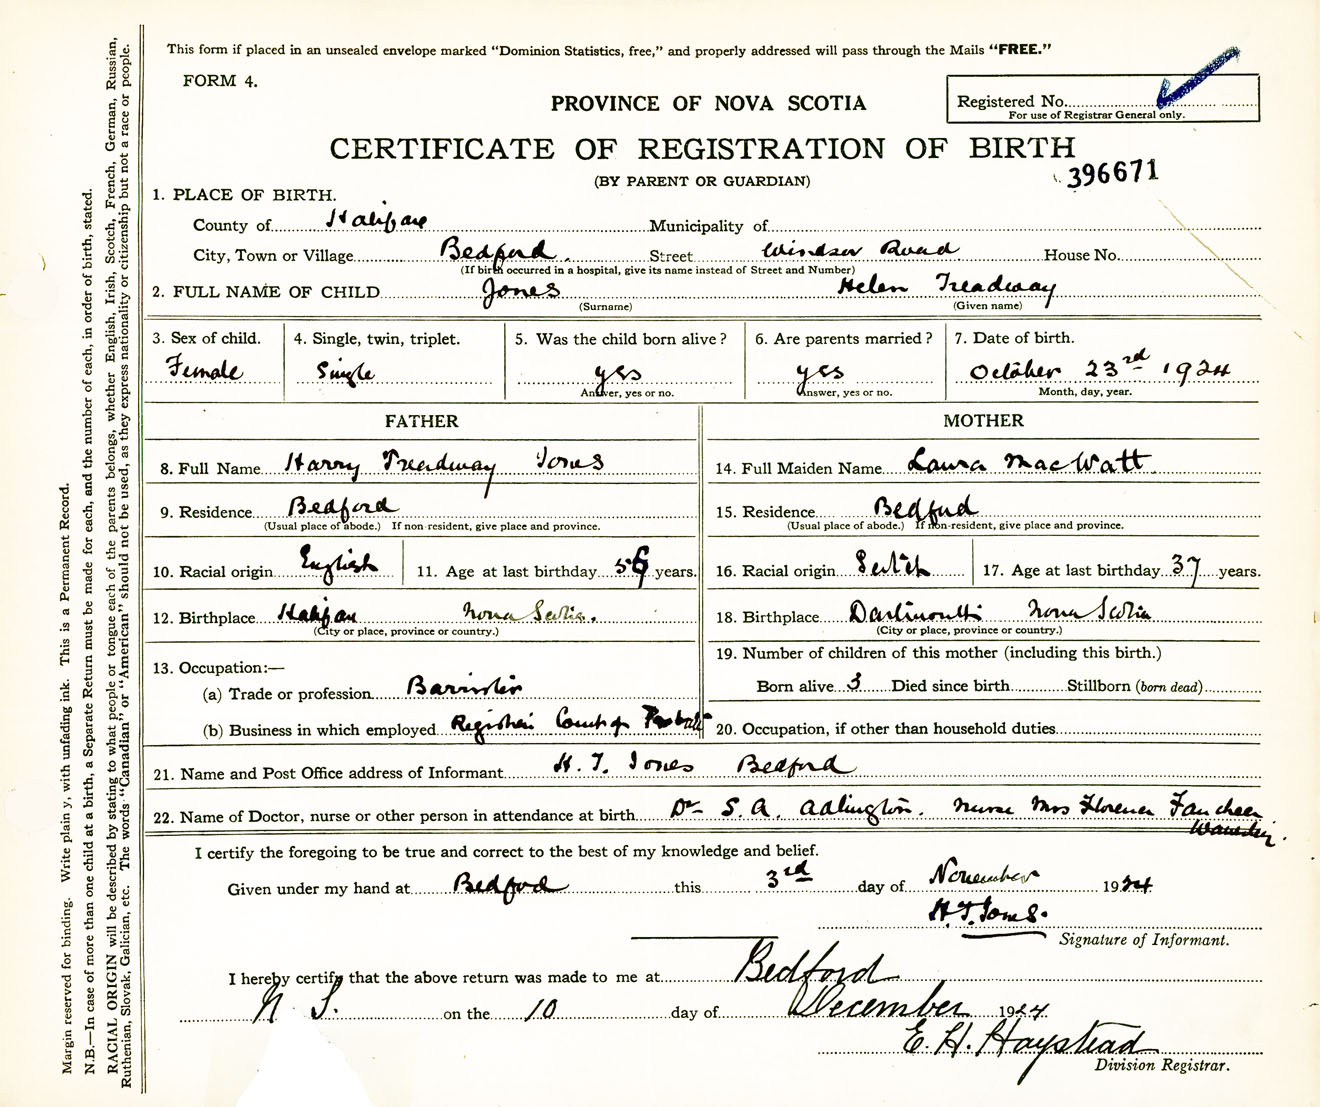 This form if placed in an unsealed envelope marked “Dominion Statistics, free,” and properly addressed will pass through the Mails “FREE.”
FORM 4.
Registered No.
For use of Registrar General only.
PROVINCE OF NOVA SCOTIA
CERTIFICATE OF REGISTRATION OF BIRTH
(BY PARENT OR GUARDIAN)
396671
1. PLACE OF BIRTH.
County of Halifax Municipality of
City, Town or Village Bedford. Street Windsor Road House No.
(If birth occurred in a hospital, give its name instead of Street and Number)
2. FULL NAME OF CHILD Jones Helen Treadway
(Surname) (Given name)
3. Sex of child. 4. Single, twin, triplet. 5. Was the child born alive? 6. Are parents married? 7. Date of birth.
Female Single yes yes October 23rd 1924
Answer, yes or no. Answer, yes or no. Month, day, year.
FATHER MOTHER
8. Full Name Harry Treadway Jones 14. Full Maiden Name Laura MacWatt
9. Residence Bedford 15. Residence Bedford
(Usual place of abode.) If non-resident, give place and province. (Usual place of abode.) If non-resident, give place and province.
10. Racial origin English 11. Age at last birthday 56 years. 16. Racial origin Scotch 17. Age at last birthday 37 years.
12. Birthplace Halifax Nova Scotia. 18. Birthplace Dartmouth Nova Scotia
(City or place, province or country.) (City or place, province or country.)
13. Occupation:— 19. Number of children of this mother (including this birth.)
(a) Trade or profession Barrister Born alive 3 Died since birth Stillborn (born dead)
(b) Business in which employed Registrar Court of Probate 20. Occupation, if other than household duties
21. Name and Post Office address of Informant H. T. Jones Bedford
22. Name of Doctor, nurse or other person in attendance at birth Dr S. A. Adlington. Nurse Mrs Florence
I certify the foregoing to be true and correct to the best of my knowledge and belief.
Given under my hand at Bedford this 3rd day of November 1924
H. T. Jones.
Signature of Informant.
I hereby certify that the above return was made to me at Bedford
N. S. on the 10 day of December 1924
E. H. Haystead
Division Registrar.
Margin reserved for binding. Write plainly, with unfading ink. This is a Permanent Record.
N.B.—In case of more than one child at a birth, a Separate Return must be made for each, and the number of each, in order of birth, stated.
RACIAL ORIGIN will be described by stating to what people or tongue each of the parents belongs, whether English, Irish, Scotch, French, German, Russian,
Ruthenian, Slovak, Galician, etc. The words “Canadian” or “American” should not be used, as they express nationality or citizenship but not a race or people.